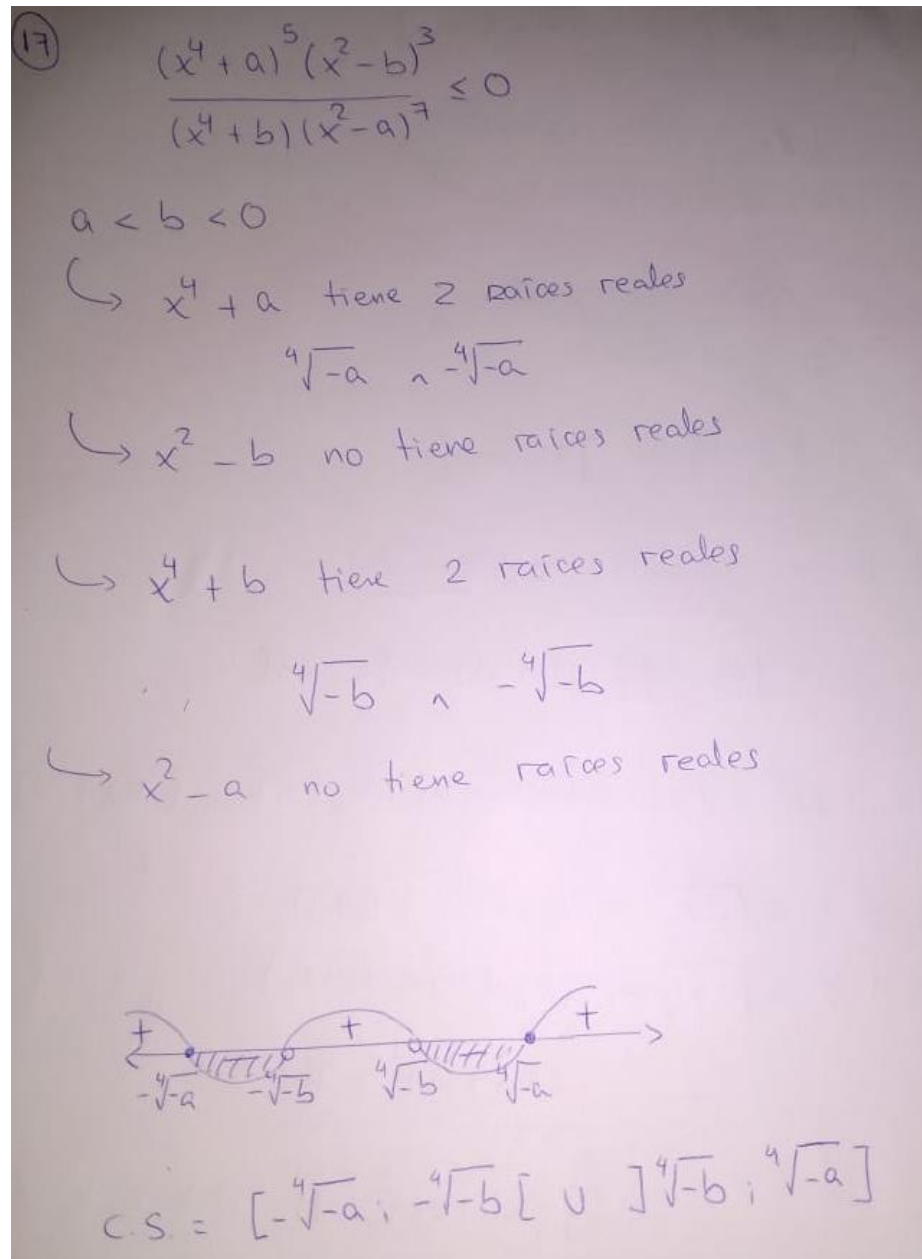 17
(x⁴ + a)⁵ (x² - b)³
/ (x⁴ + b) (x² - a)⁷ ≤ 0
a < b < 0
↳ x⁴ + a tiene 2 raíces reales
⁴√-a ∧ -⁴√-a
↳ x² - b no tiene raíces reales
↳ x⁴ + b tiene 2 raíces reales
⁴√-b ∧ -⁴√-b
↳ x² - a no tiene raíces reales
+ + +
-⁴√-a -⁴√-b ⁴√-b ⁴√-a
C.S. = [-⁴√-a ; -⁴√-b[ ∪ ]⁴√-b ; ⁴√-a]